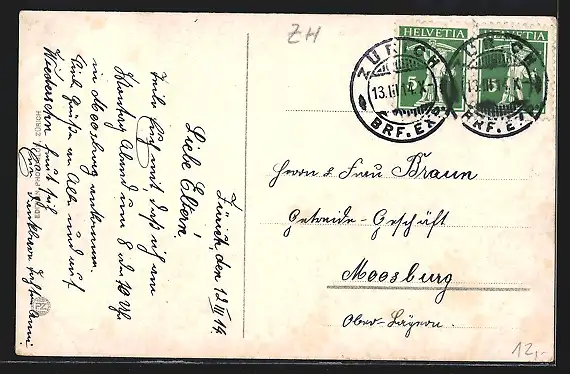 ZH
HELVETIA
HELVETIA
5
ZÜRICH
13.III.14.X-
BRF. EXP.
ZÜRICH
BRF. EXP.
Herrn & Frau Braun
Getreide-Geschäft
Moosburg
Ober-Bayern.
12,-
Zürich, den 12 III 14.
Liebe Eltern.
Teile Euch mit daß ich am
Abend um 8 Uhr
in Moosburg ankomme.
Viele Grüße an Alle und auf
Wiedersehn freut sich